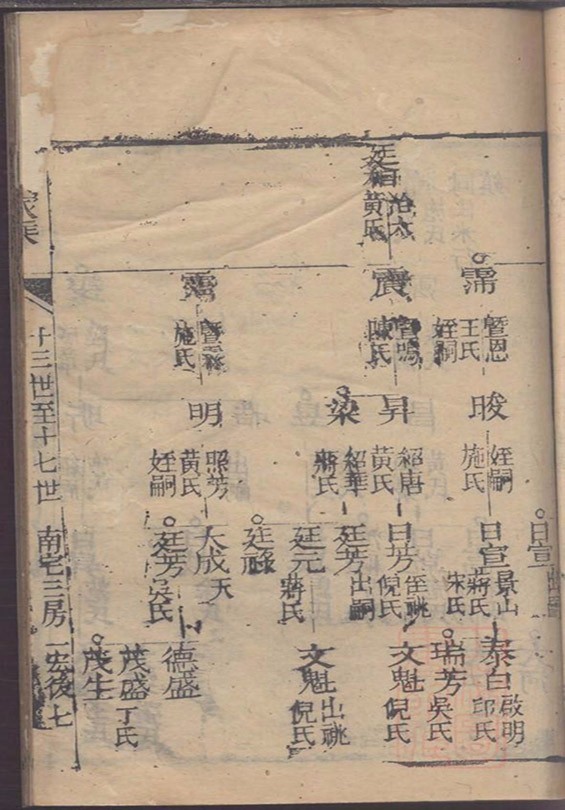 治太
黃氏
霈
曁恩
王氏
姪嗣
震
陳氏
霱
施氏
晙
姪嗣
施氏
昇
紹唐
黃氏
燊
紹華
蔣氏
明
照芳
黃氏
姪嗣
日宣
出嗣
日宣
景山
蔣氏
宋氏
日芳
侄祧
倪氏
廷芳
出嗣
廷元
蔣氏
廷祿
大成
夭
廷芳
吳氏
泰白
啟明
邱氏
瑞芳
吳氏
文魁
倪氏
文魁
出祧
倪氏
德盛
茂盛
丁氏
茂生
十三世至十七世
南宅三房
宏後七